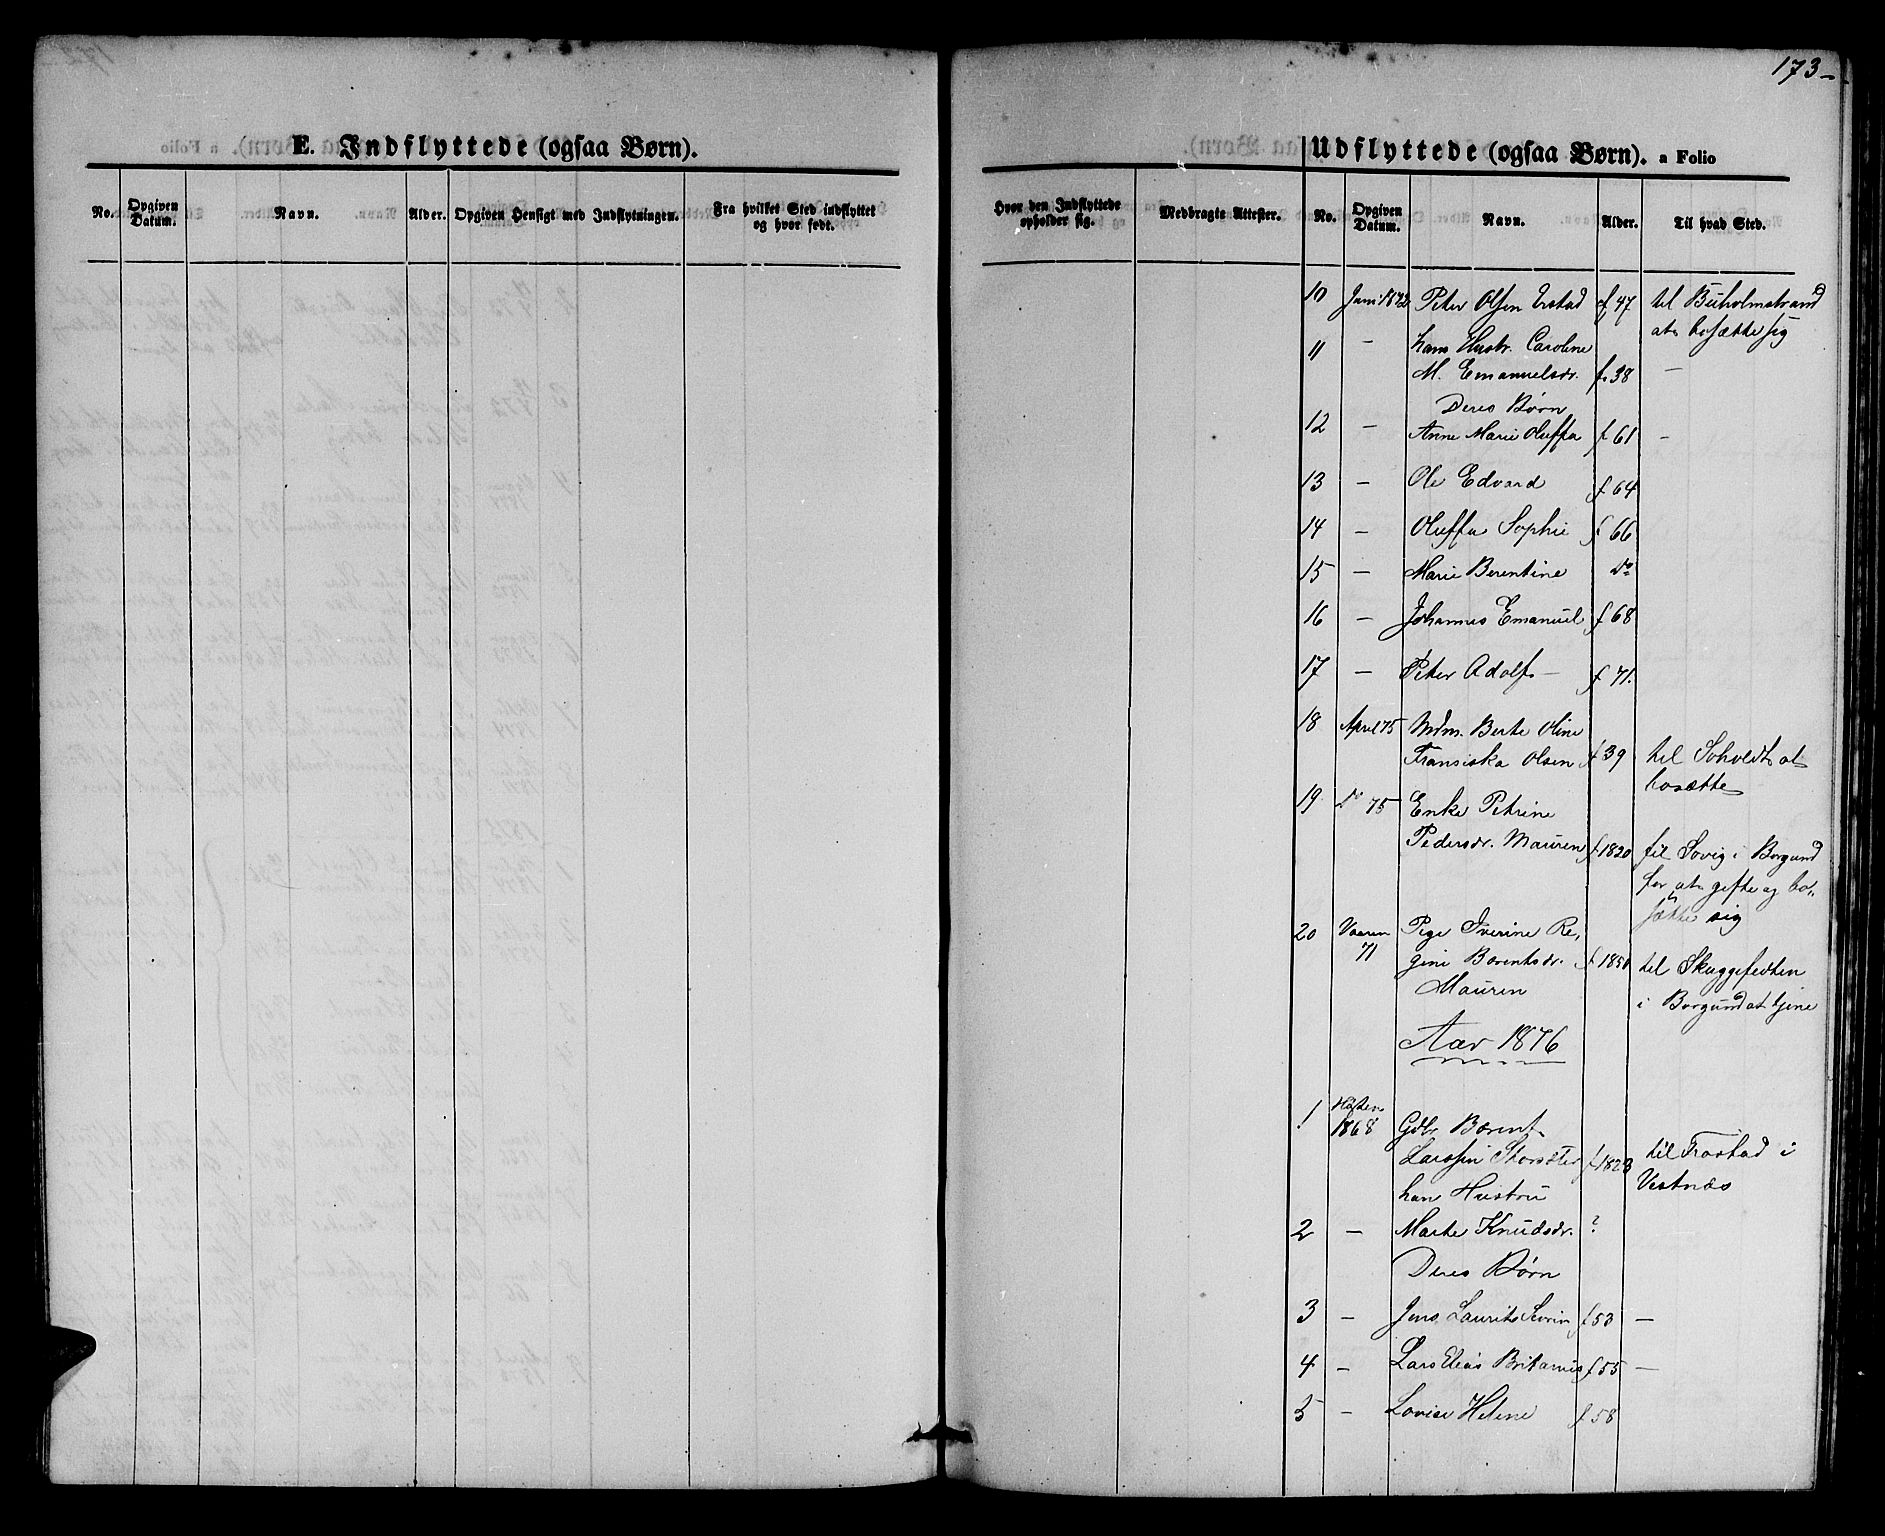 173
E. Indflyttede (ogsaa Børn).
No.
Opgiven Datum.
Navn.
Alder.
Opgiven Hensigt med Indflytningen.
Fra hvilket Sted indflyttet og hvor født.
Udflyttede (ogsaa Børn). a Folio
Hvor den Indflyttede opholder sig.
Medbragte Attester.
No.
Opgiven Datum.
Navn.
Alder.
Til hvad Sted.
10 Juni 1872 Peter Olsen Erstad f 47 til Buholmstrand
at bosætte sig
11 - hans Hustr. Caroline
M. Emanuelsdr. f. 38 -
Deres Børn
12 - Anne Marie Oluffa f 61 -
13 - Ole Edvard f 64
14 - Oluffa Sophie f 66
15 - Marie Berentine Do
16 - Johannes Emanuel f 68
17 - Peter Adolf - f 71.
18 April 75 Mdm. Berte Oline
Fransiska Olsen f 39 til Soholdt at
bosætte
19 Do 75 Enke Petrine
Pedersdr. Mauren f 1820 til Sovig i Borgund
for at gifte og bo-
sætte sig
20 Vaaren 71 Pige Iverine Re-
gine Berentsdr. f 1851 til Skuggefedten
Mauren i Borgund at tjene
Aar 1876
1 Høsten
1868 Gdbr Berent
Larssen Storsæter f 1823 til Frostad i
han Hustru Vestnæs
2 - Marte Knudsdr. ?
Deres Børn
3 - Jens Laurits Severin f 53 -
4 - Lars Elias Britanus f 55 -
5 - Lovise Helene f 58